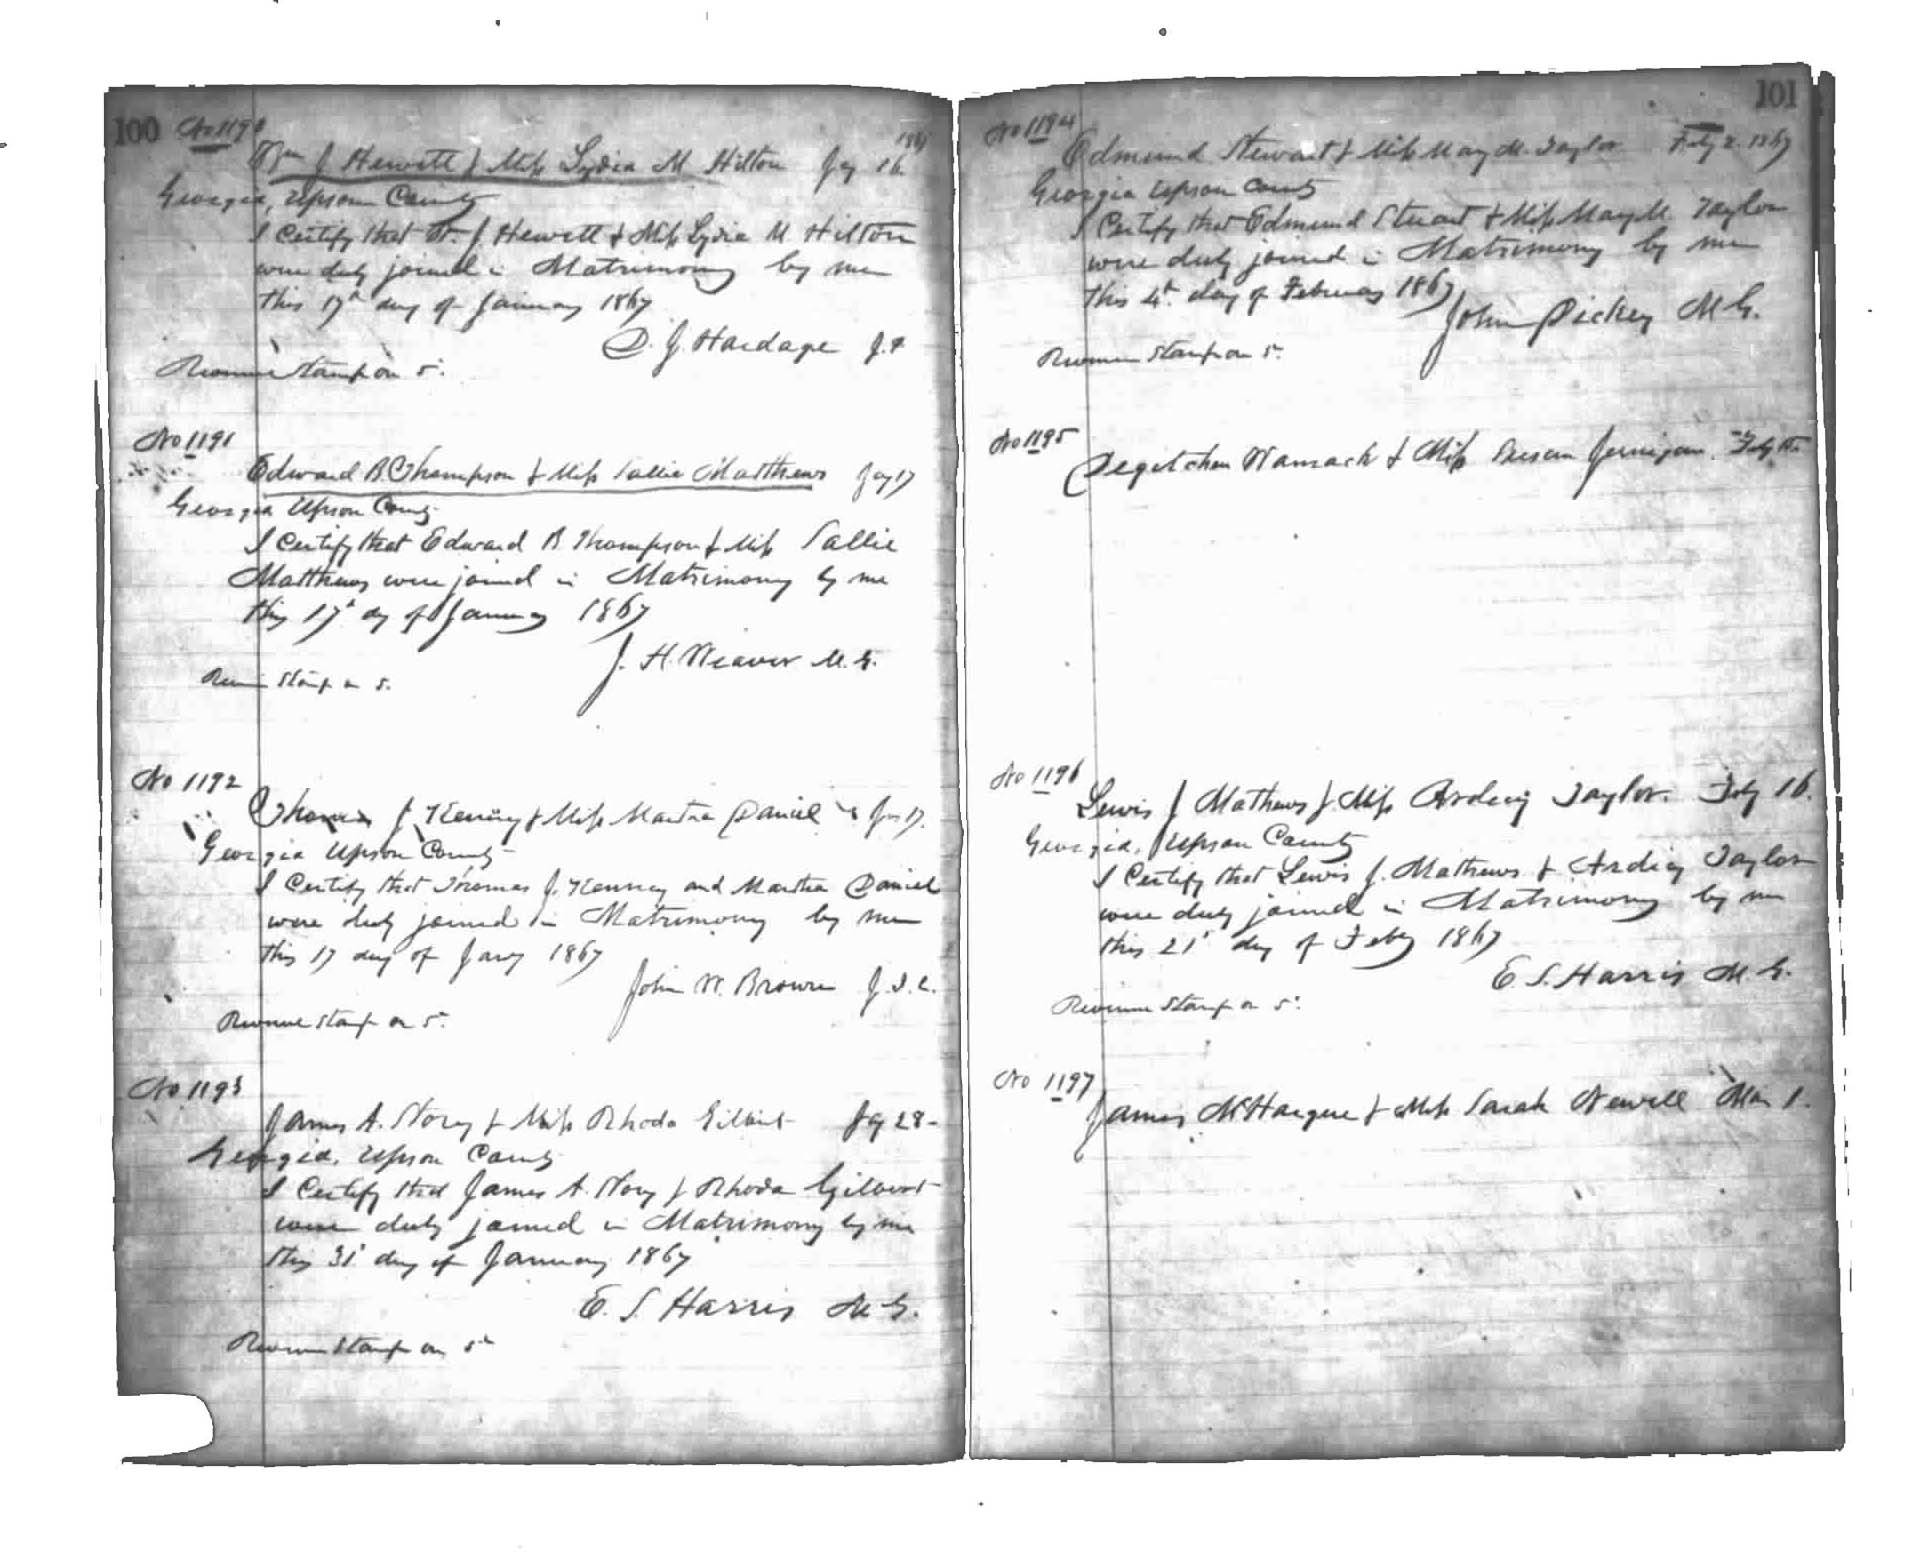 100 No 1190
1867
Wm J Hewett & Miss Lydia M Hilton Jay 16
Georgia, Upson County
I Certify that W. J. Hewett & Miss Lydia M Hilton
were duly joined in Matrimony by me
this 17th day of January 1867
D. J. Hardage J.P
Revenue Stamp on 5.
No 1191
Edward B Thompson & Miss Sallie Matthews Jay 17
Georgia Upson County
I Certify that Edward B Thompson & Miss Sallie
Matthews were joined in Matrimony by me
this 17th dy of January 1867
J. H. Weaver M.G.
Revenue Stamp on 5.
No 1192
Thomas J Kenney & Miss Martha Daniel Jay 17.
Georgia Upson County
I Certify that Thomas J. Kenney and Martha Daniel
were duly joined in Matrimony by me
this 17 day of Jany 1867
John W. Brown J.I.C.
Revenue Stamp on 5.
No 1193
James A. Story & Miss Rhoda Gilbert Jay 28
Georgia, Upson County
I Certify that James A. Story & Rhoda Gilbert
were duly joined in Matrimony by me
this 31st day of January 1867
E. S. Harris M.G.
Revenue Stamp on 5
101
No 1194
Edmund Stewart & Miss Mary M. Taylor Feby 2. 1867
Georgia Upson County
I Certify that Edmund Stuart & Miss Mary M. Taylor
were duly joined in Matrimony by me
this 4th day of February 1867
John Dickey M.G.
Revenue Stamp on 5.
No 1195
Womack & Miss Susan Jernigan. Feby
No 1196
Lewis J Mathews & Miss Taylor. Feby 16.
Georgia, Upson County
I Certify that Lewis J. Mathews & Taylor
were duly joined in Matrimony by me
this 21st day of Feby 1867
E. S. Harris M.G.
Revenue Stamp on 5.
No 1197
James McHargue & Miss Sarah Newell Mar 1.